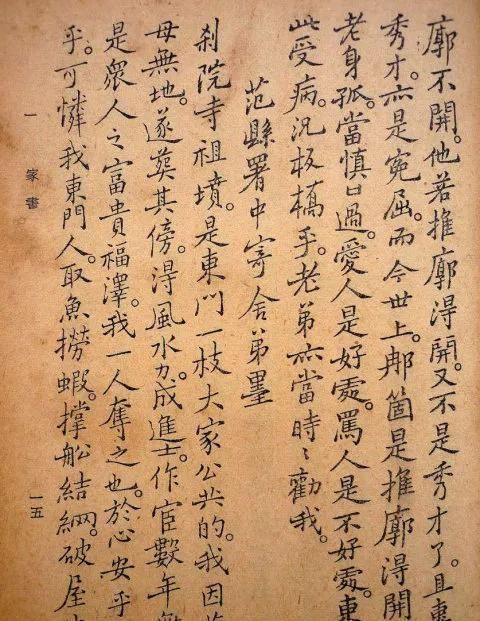 廓不開。他若推廓得開。又不是秀才了。且
秀才。亦是冤屈。而今世上。那箇是推廓得開
老身孤。當慎口過。愛人是好處。罵人是不好處。東
此受病。況板橋乎。老弟亦當時〻勸我。
范縣署中寄舍弟墨
刹院寺祖墳。是東門一枝大家公共的。我因
母無地。遂葬其傍。得風水力。成進士。作宦數年
是衆人之富貴福澤。我一人奪之也。於心安乎
乎。可憐我東門人。取魚撈蝦。撐舩結網。破屋
一 家書 一五